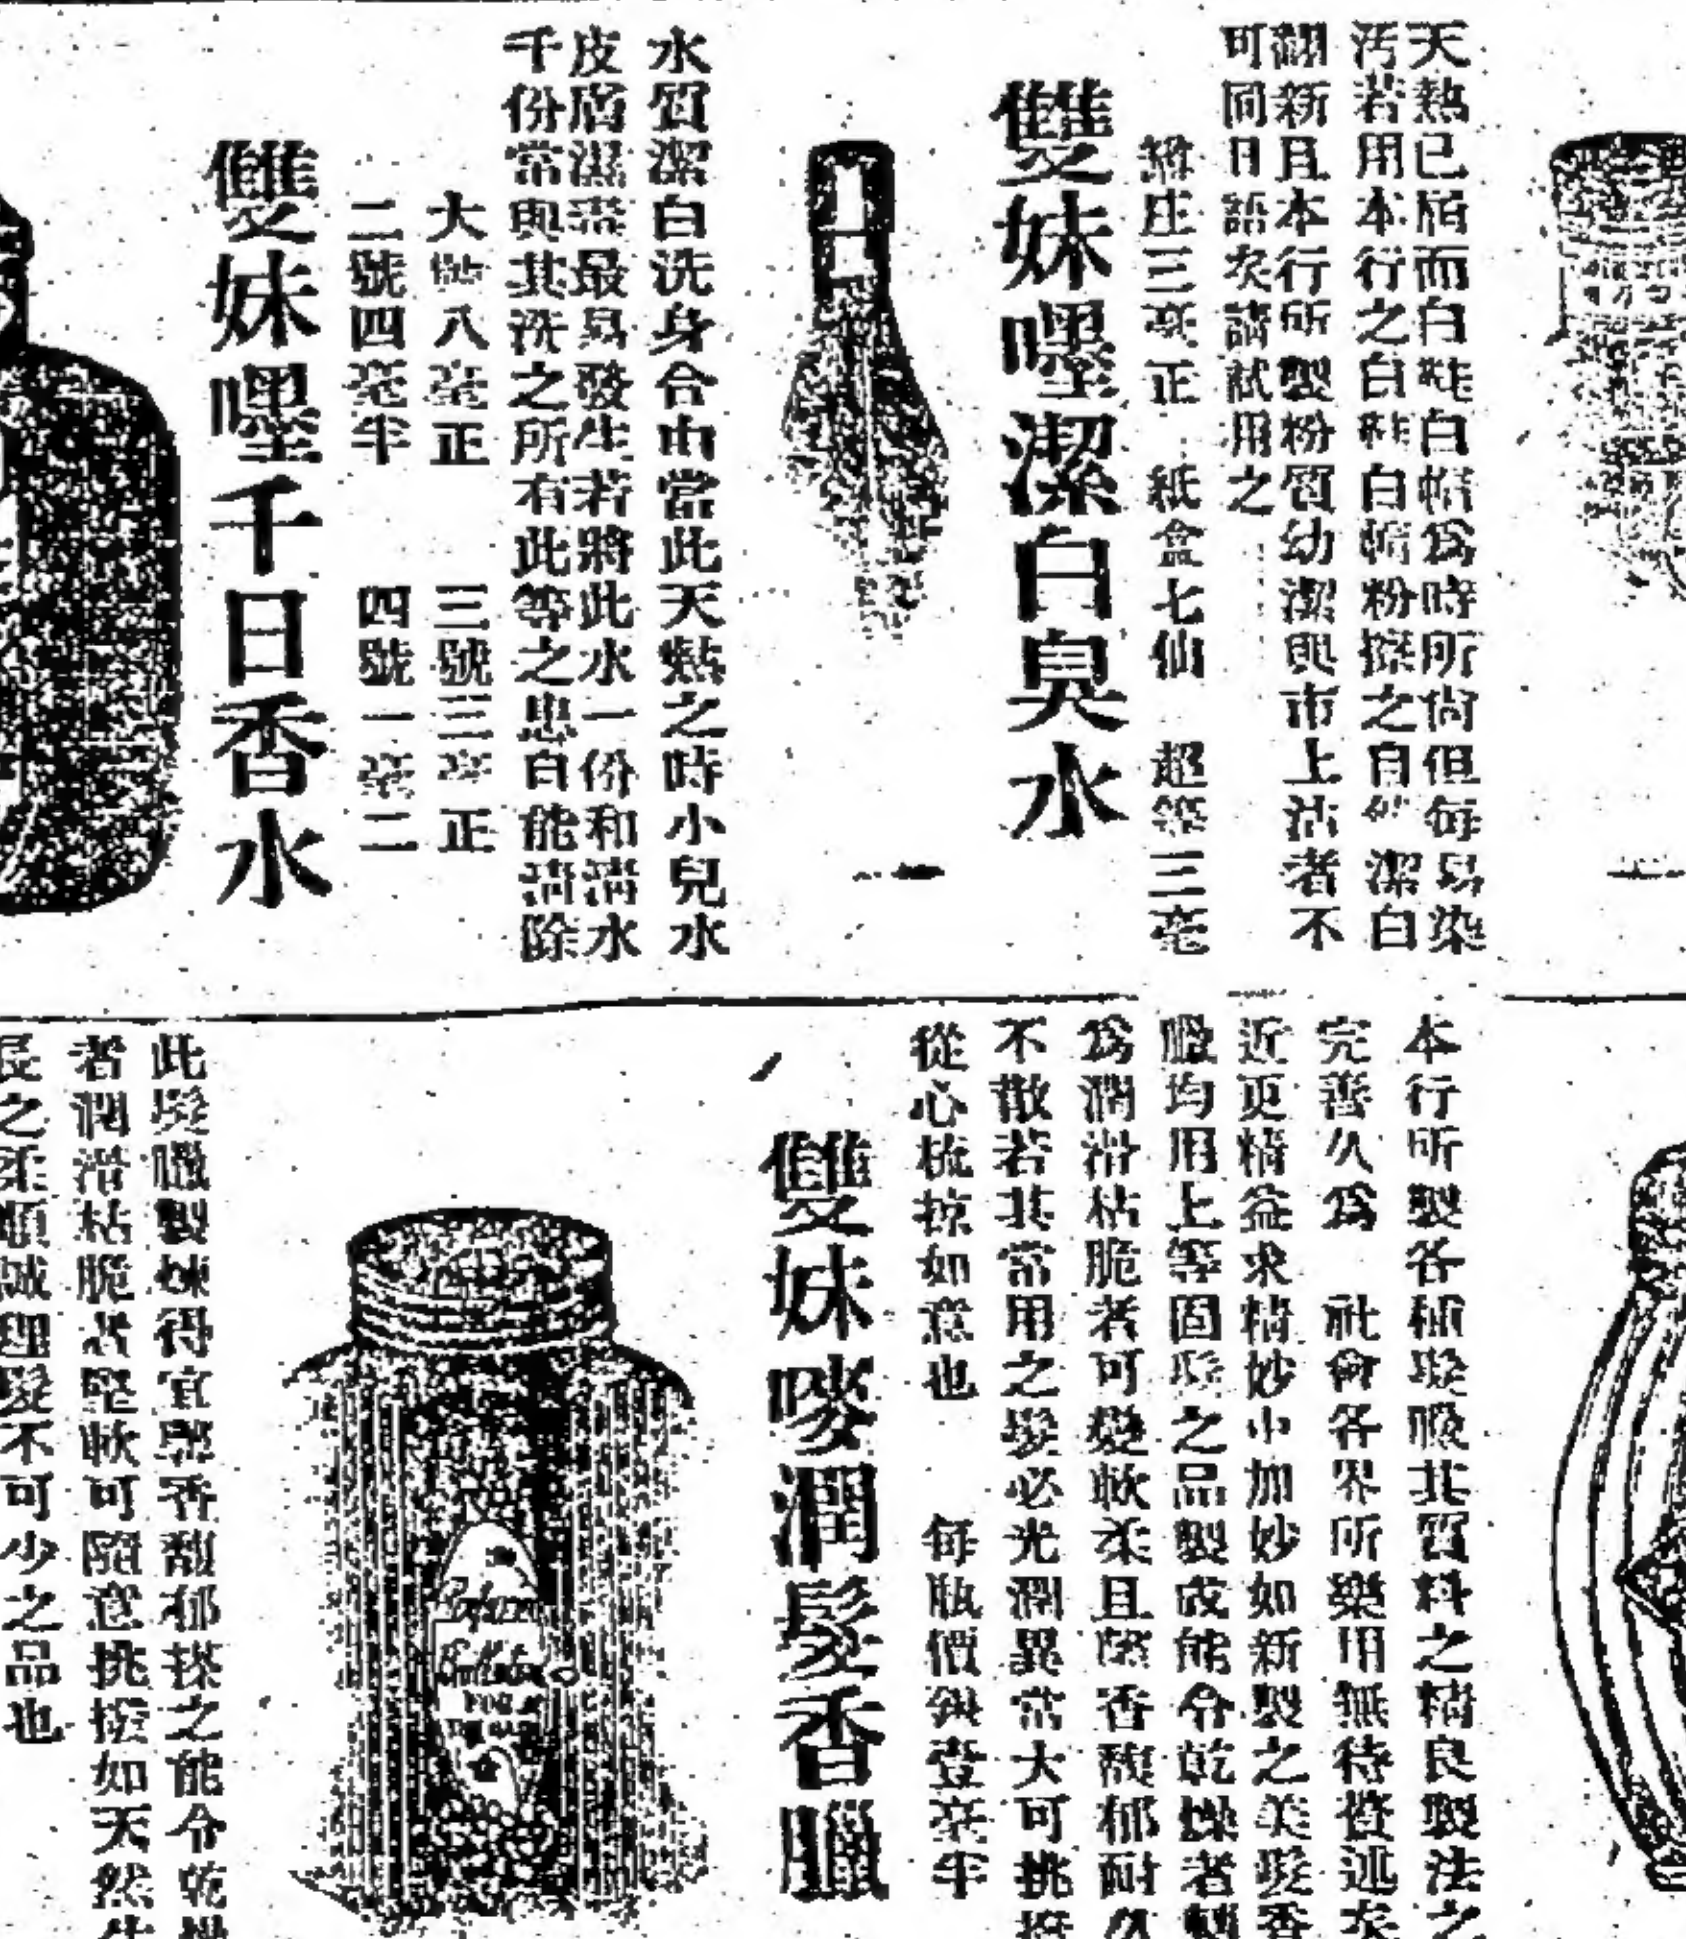 天熱已屆而白鞋白帽爲時所尙但每易染
汚若用本行之白鞋白帽粉搽之自然潔白
翻新且本行所製粉質幼潔與市上沽者不
可同日語次請試用之
庄三毫正 紙盒七仙 超等三毫
雙妹嚜潔白臭水
水質潔白洗身合由當此天熱之時小兒水
皮膚濕毒最易發生若將此水一份和淸水
千份常與其洗之所有此等之患自能淸除
大號八毫正 三號三毫正
二號四毫半 四號一毫二
雙妹嚜千日香水
本行所製各種髮臘其質料之精良製法之
完善久爲 社會各界所樂用無待贅述
近更精益求精妙中加妙如新製之美髮香
臘均用上等固髮之品製成能令乾燥者
爲潤滑枯脆者可變軟柔且馥香馥郁耐久
不散若其常用之髮必光潤異常大可挑
從心梳掠如意也 每瓶價銀壹毫半
雙妹嘜潤髮香臘
此髮臘製煉得宜 香馥郁搽之能令乾燥
者潤滑枯脆者堅軟可隨意挑 如天然生
長之柔順誠理髮不可少之品也